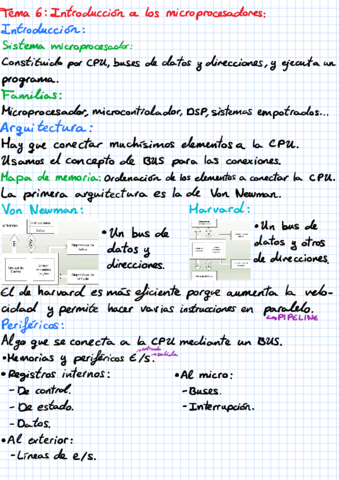 Tema 6: Introducción a los microprocesadores:
Introducción:
Sistema microprocesador:
Constituido por CPU, buses de datos y direcciones, y ejecuta un
programa.
Familias:
Microprocesador, microcontrolador, DSP, sistemas empotrados...
Arquitectura:
Hay que conectar muchísimos elementos a la CPU.
Usamos el concepto de BUS para las conexiones.
Mapa de memoria: Ordenación de los elementos a conectar la CPU.
La primera arquitectura es la de Von Newman.
Von Newman:
• Un bus de
datos y
direcciones.
Harvard:
• Un bus de
datos y otros
de direcciones.
El de harvard es más eficiente porque aumenta la velo-
cidad y permite hacer varias instrucciones en paralelo.
↳PIPELINE
Periféricos:
Algo que se conecta a la CPU mediante un BUS.
• Memorias y periféricos E/S.
entrada
salida
• Registros internos:
- De control.
- De estado.
- Datos.
• Al exterior:
- Líneas de e/s.
• Al micro:
- Buses.
- Interrupción.